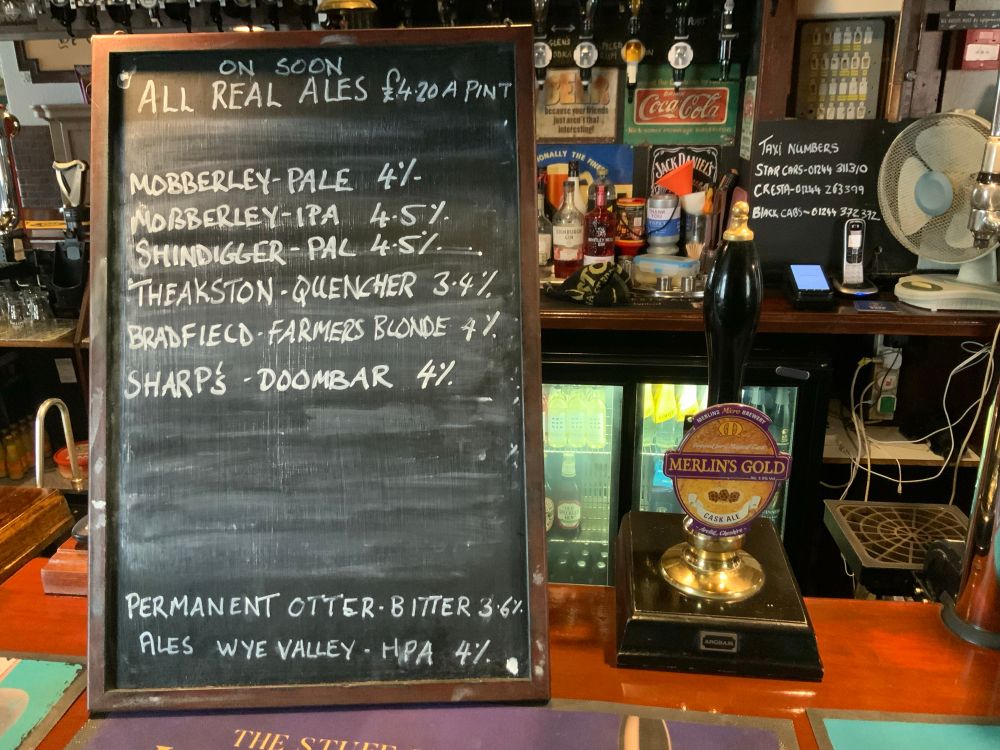 ON SOON
ALL REAL ALES £4.20 A PINT
MOBBERLEY-PALE 4%
MOBBERLEY-IPA 4.5%
SHINDIGGER-PAL 4.5%
THEAKSTON-QUENCHER 3.4%
BRADFIELD-FARMERS BLONDE 4%
SHARP'S - DOOMBAR 4%
PERMANENT OTTER-BITTER 3.6%
ALES WYE VALLEY - HPA 4%
BEER
because your friends
just aren't that
interesting!
Coca-Cola
JACK DANIEL'S
TAXI NUMBERS
STAR CARS-01244 311310
CRESTA-01244 263399
BLACK CABS-01244 372372
MERLINS Micro BREWERY
MERLIN'S GOLD
CASK ALE
Arclid, Cheshire
ANGRAM
THE STUFF